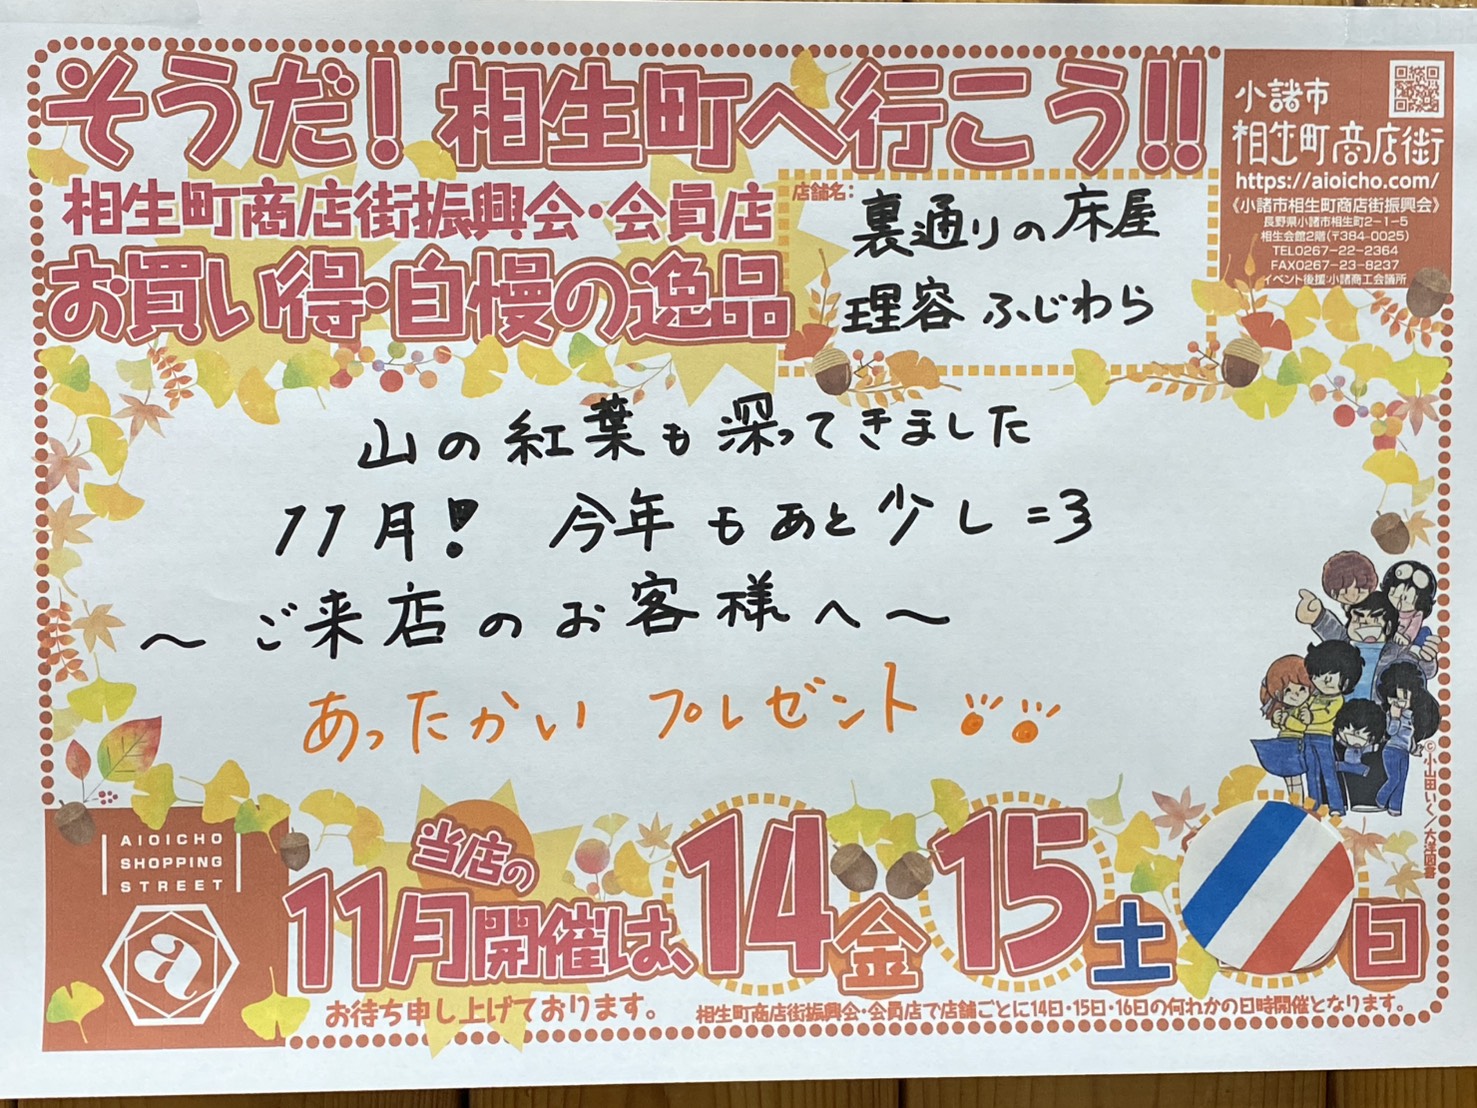 そうだ！相生町へ行こう!!
相生町商店街振興会・会員店
お買い得・自慢の逸品
店舗名：
裏通りの床屋
理容 ふじわら
小諸市
相生町商店街
https://aioicho.com/
《小諸市相生町商店街振興会》
長野県小諸市相生町2-1-5
相生会館2階(〒384-0025)
TEL0267-22-2364
FAX0267-23-8237
イベント後援:小諸商工会議所
山の紅葉も深ってきました
11月! 今年もあと少し=3
〜ご来店のお客様へ〜
あったかい プレゼント
©小山田いく／大洋図書
AIOICHO
SHOPPING
STREET
a
当店の
11月開催は、14金 15土 日
お待ち申し上げております。
相生町商店街振興会・会員店で店舗ごとに14日・15日・16日の何れかの日時開催となります。